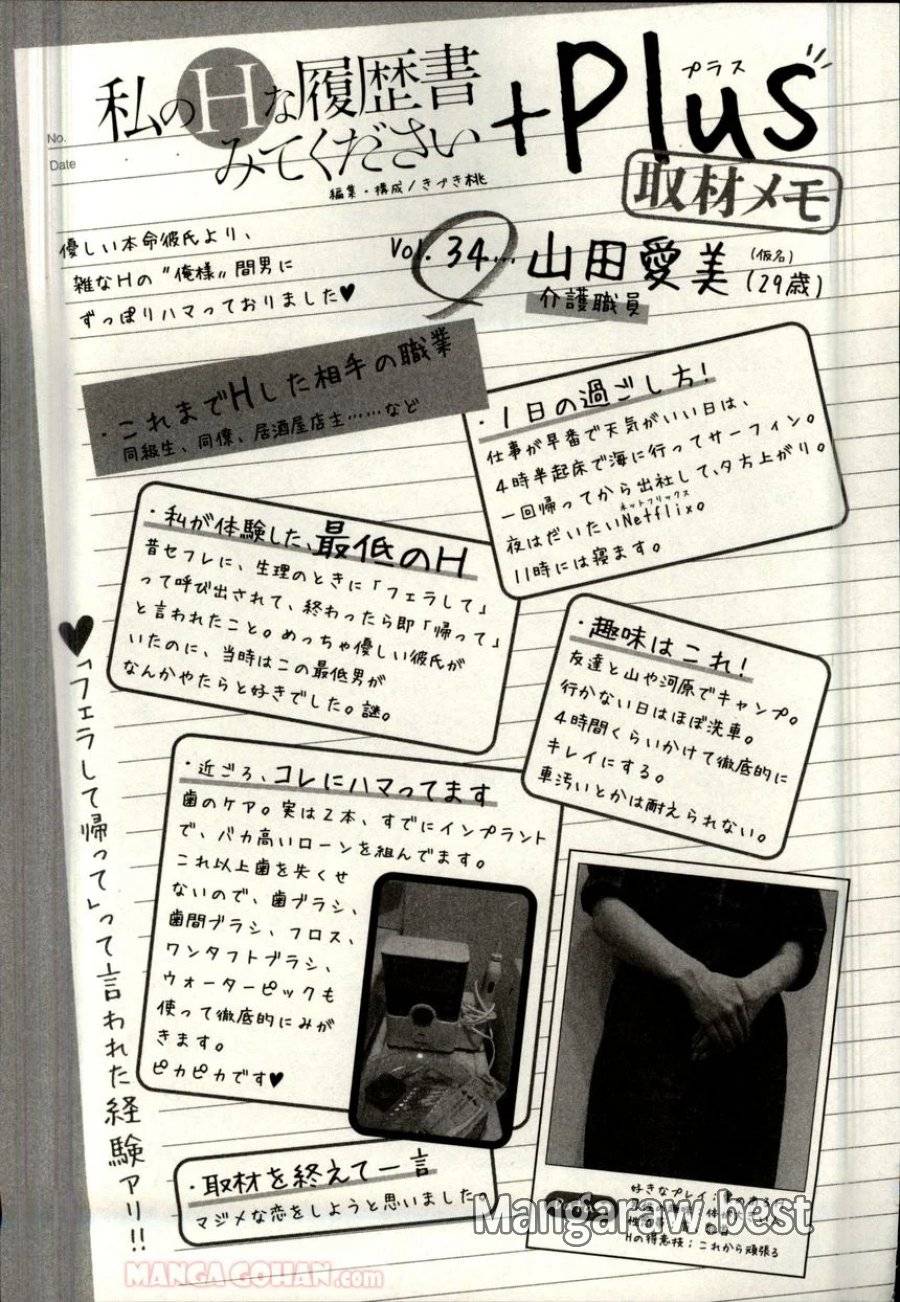 No.
Date
私のHな履歴書
みてください
+Plus
プラス
編集・構成/きづき桃
取材メモ
優しい本命彼氏より、
雑なHの"俺様"間男に
ずっぽりハマっておりました♥
Vol. 34...
山田愛美
(仮名)
(29歳)
介護職員
・これまでHした相手の職業
同級生、同僚、居酒屋店主……など
・1日の過ごし方!
仕事が早番で天気がいい日は、
4時半起床で海に行ってサーフィン。
一回帰ってから出社して、夕方上がり。
ネットフリックス
夜はだいたいNetflix。
11時には寝ます。
・私が体験した、最低のH
昔セフレに、生理のときに「フェラして」
って呼び出されて、終わったら即「帰って」
と言われたこと。めっちゃ優しい彼氏が
いたのに、当時はこの最低男が
なんかやたらと好きでした。謎。
・趣味はこれ!
友達と山や河原でキャンプ。
行かない日はほぼ洗車。
4時間くらいかけて徹底的に
キレイにする。
車汚いとかは耐えられない。
♥「フェラして帰って」って言われた経験アリ!!
・近ごろ、コレにハマってます
歯のケア。実は2本、すでにインプラント
で、バカ高いローンを組んでます。
これ以上歯を失くせ
ないので、歯ブラシ、
歯間ブラシ、フロス、
ワンタフトブラシ、
ウォーターピックも
使って徹底的にみが
きます。
ピカピカです♥
・取材を終えて一言
マジメな恋をしようと思いました。
好きなプレイ;
Hの得意技;これから頑張る
Mangaraw.best
MANGAGOHAN.com